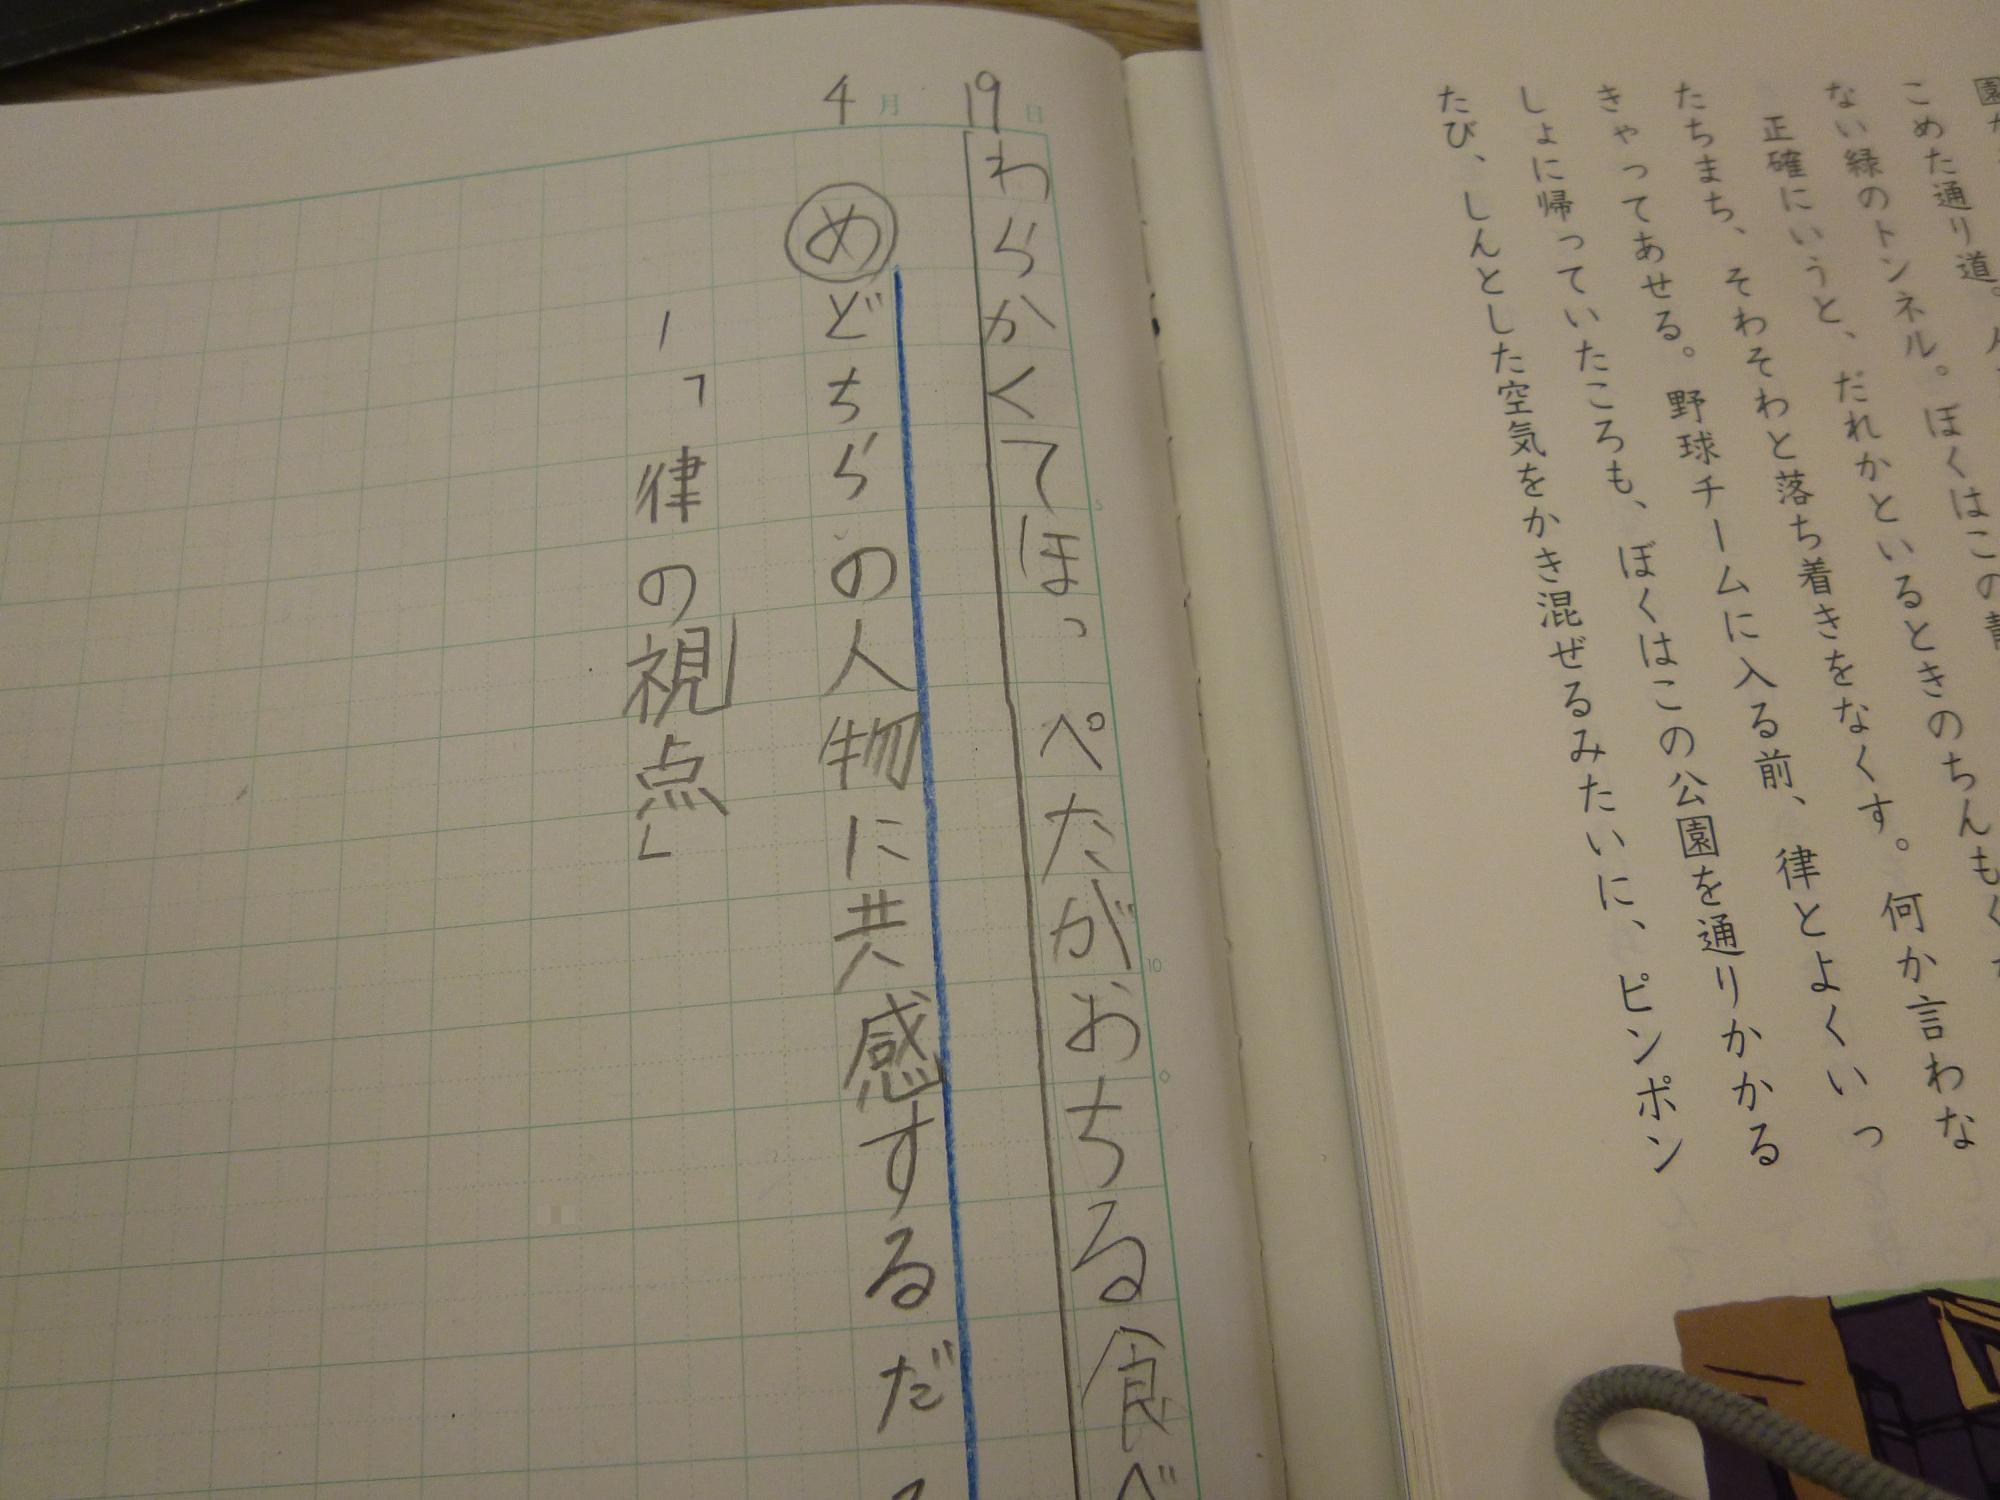 こめた通り道。
ない緑のトンネル。ぼくはこの青
正確にいうと、だれかといるときのちんもく
たちまち、そわそわと落ち着きをなくす。何か言わな
きゃってあせる。野球チームに入る前、律とよくいっ
しょに帰っていたころも、ぼくはこの公園を通りかかる
たび、しんとした空気をかき混ぜるみたいに、ピンポン
4月19日
わらかくてほっぺたがおちる食べ
めどちらの人物に共感するだ
1「律の視点」
5
10